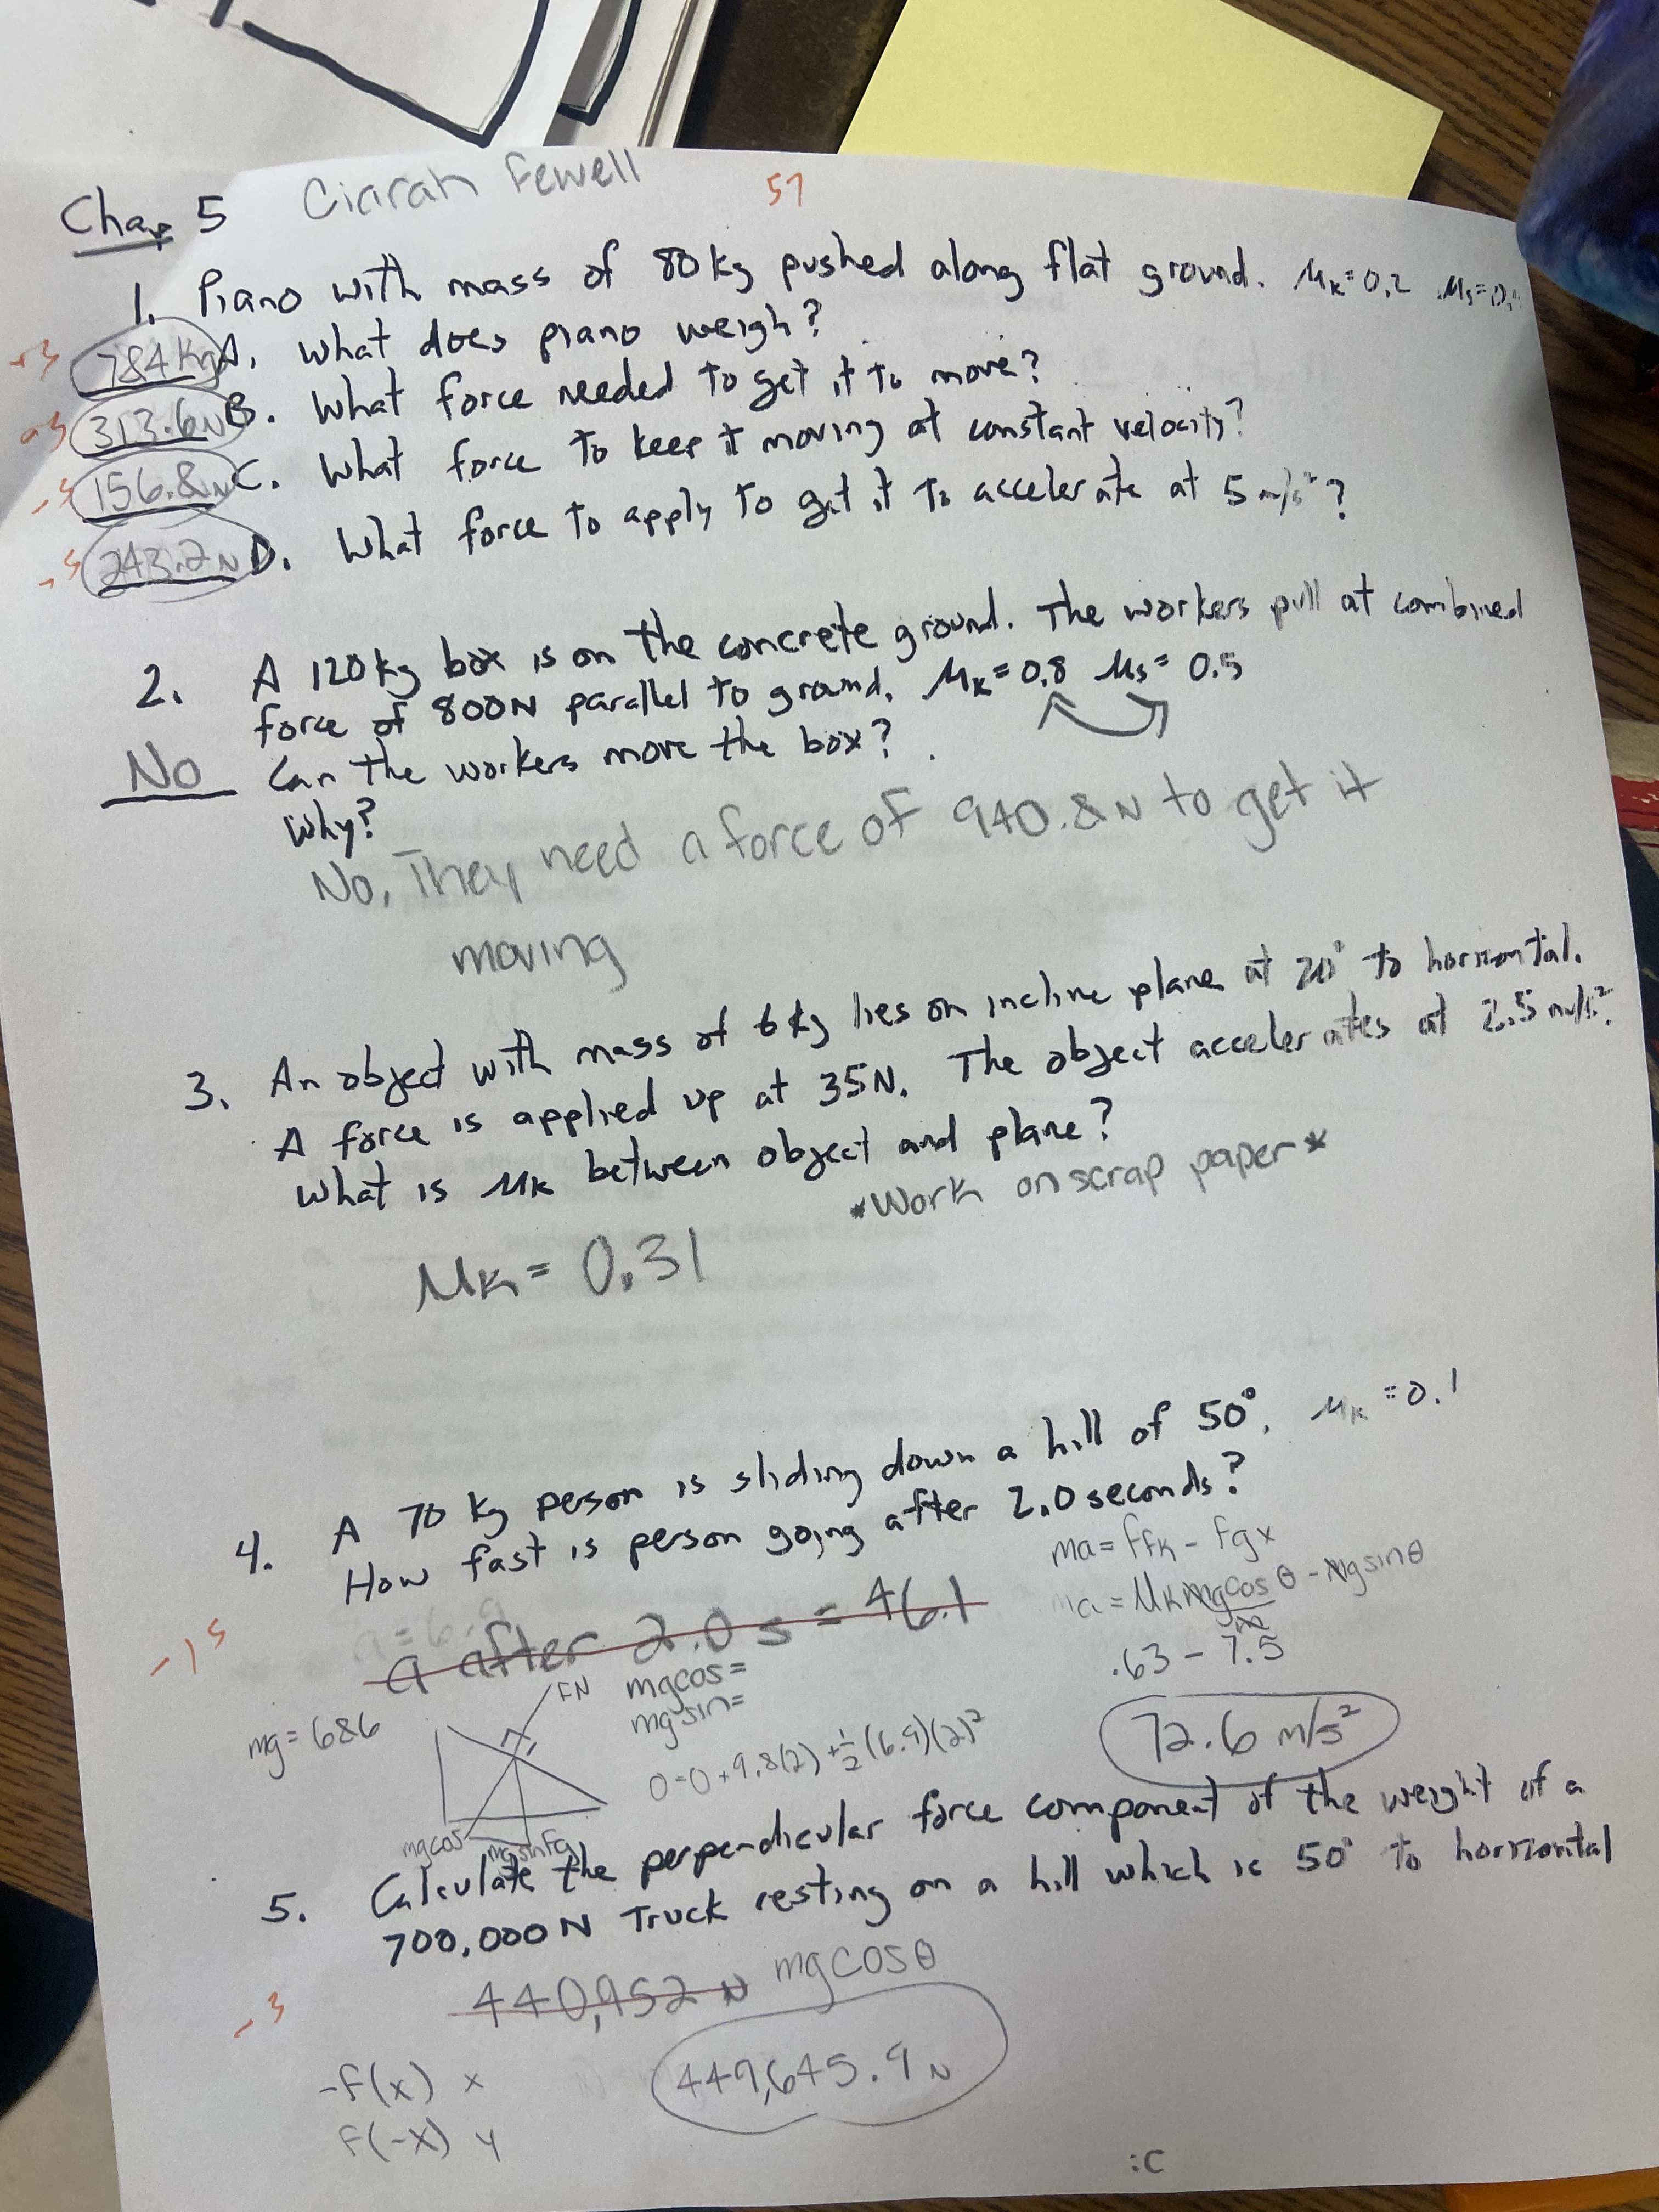 Chap 5 Ciarah Fewell 57
1. Piano with mass of 80kg pushed along flat ground. μk=0.2 μs=0.
+3 784 Kg A. What does piano weigh?
313.6N B. What force needed to get it to move?
156.8N C. What force to keep it moving at constant velocity?
243.2N D. What force to apply to get it to accelerate at 5 m/s² ?
2. A 120kg box is on the concrete ground. The workers pull at combined
force of 800N parallel to ground. μk=0.8 μs= 0.5
No Can the workers move the box?
Why?
No, They need a force of 940.8N to get it
moving
3. An object with mass of 6kg lies on incline plane at 20° to horizontal.
A force is applied up at 35N. The object accelerates at 2.5 m/s².
What is μk between object and plane?
*Work on scrap paper*
μK= 0.31
4. A 70 kg person is sliding down a hill of 50°. μk =0.1
How fast is person going after 2.0 seconds?
ma= Ffk - Fgx
a = μkmgcosθ - mgsinθ
m
a=6.9
-15 a after 2.0 s = 46.1
.63 - 7.5
FN mgcos=
mgsin=
mg= 686
0=0+9.8(2)+½(6.9)(2)²
72.6 m/s²
mgcos mgsin Fg
5. Calculate the perpendicular force component of the weight of a
700,000N Truck resting on a hill which is 50° to horizontal
440,952 N mgcosθ
-3
449,645.9 N
-F(x) x
F(-x) y
:C